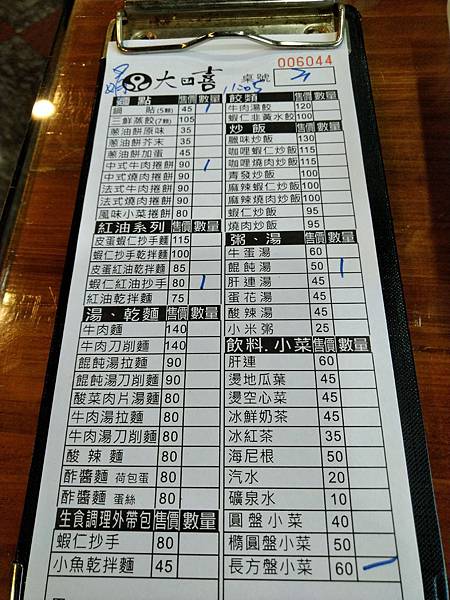 006044
大四喜 桌號
11:05
麵點 售價 數量
鍋貼(5顆) 45 1
三鮮蒸餃(7顆) 105
蔥油餅原味 35
蔥油餅芥末 35
蔥油餅加蛋 45
中式牛肉捲餅 90 1
中式燒肉捲餅 90
法式牛肉捲餅 100
法式燒肉捲餅 90
風味小菜捲餅 80
紅油系列 售價 數量
皮蛋蝦仁抄手麵 115
蝦仁抄手乾拌麵 100
皮蛋紅油乾拌麵 85
蝦仁紅油抄手 80 1
紅油乾拌麵 75
湯、乾麵 售價 數量
牛肉麵 140
牛肉刀削麵 140
餛飩湯拉麵 90
餛飩湯刀削麵 90
酸菜肉片湯麵 80
牛肉湯拉麵 80
牛肉湯刀削麵 80
酸辣麵 80
酢醬麵 荷包蛋 80
酢醬麵 蛋絲 80
生食調理外帶包 售價 數量
蝦仁抄手 80
小魚乾拌麵 45
餃類 售價 數量
牛肉湯餃 120
蝦仁韭黃水餃 100
炒飯 售價 數量
臘味炒飯 130
咖哩蝦仁炒飯 115
咖哩燒肉炒飯 115
青發炒飯 100
麻辣蝦仁炒飯 100
麻辣燒肉炒飯 100
蝦仁炒飯 95
燒肉炒飯 95
粥、湯 售價 數量
牛蛋湯 60
餛飩湯 50 1
肝連湯 45
蛋花湯 45
酸辣湯 45
小米粥 25
飲料.小菜 售價 數量
肝連 60
燙地瓜葉 45
燙空心菜 45
冰鮮奶茶 45
冰紅茶 35
海尼根 50
汽水 20
礦泉水 10
圓盤小菜 40
橢圓盤小菜 50
長方盤小菜 60 一